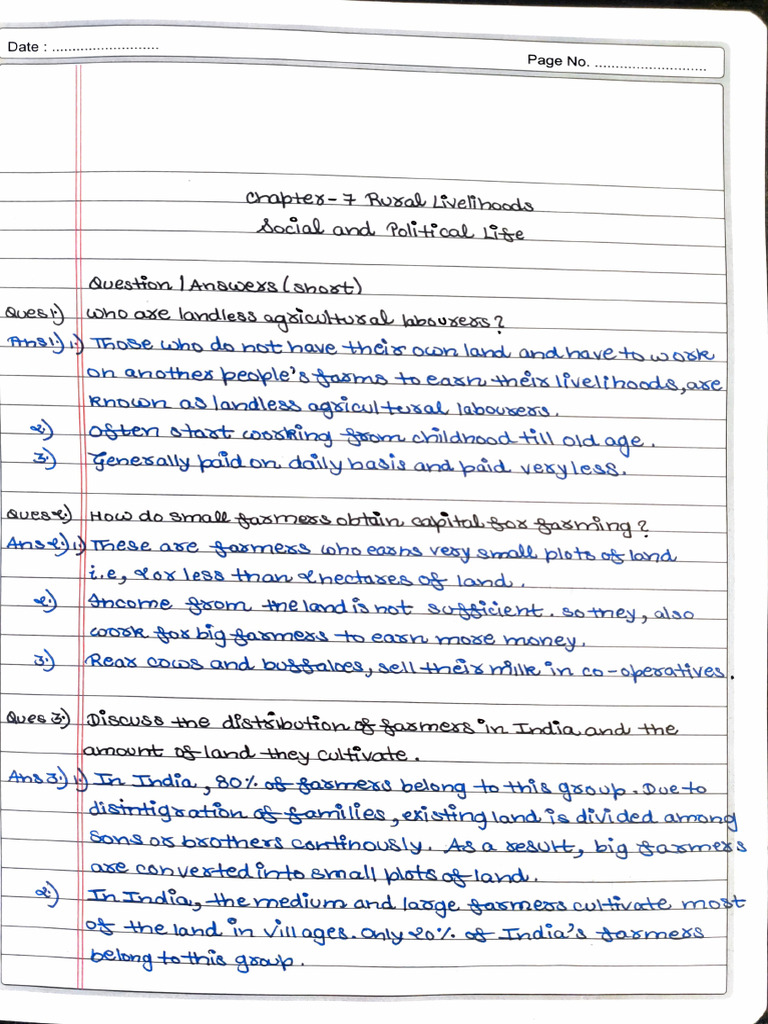 Date : ..........................
Page No. ...........................
Chapter-7 Rural Livelihoods
Social and Political Life
Question / Answers (short)
Ques 1.) Who are landless agricultural labourers?
Ans 1.) 1.) Those who do not have their own land and have to work
on another people's farms to earn their livelihoods, are
known as landless agricultural labourers.
2.) Often start working from childhood till old age.
3.) Generally paid on daily basis and paid very less.
Ques 2.) How do small farmers obtain capital for farming?
Ans 2.) 1.) These are farmers who earns very small plots of land
i.e, 2 or less than 2 hectares of land.
2.) Income from the land is not sufficient. so they, also
work for big farmers to earn more money.
3.) Rear cows and buffaloes, sell their milk in co-operatives.
Ques 3.) Discuss the distribution of farmers in India and the
amount of land they cultivate.
Ans 3.) 1.) In India, 80% of farmers belong to this group. Due to
disintigration of families, existing land is divided among
sons or brothers continously. As a result, big farmers
are converted into small plots of land.
2.) In India, the medium and large farmers cultivate most
of the land in villages. Only 20% of India's farmers
belong to this group.